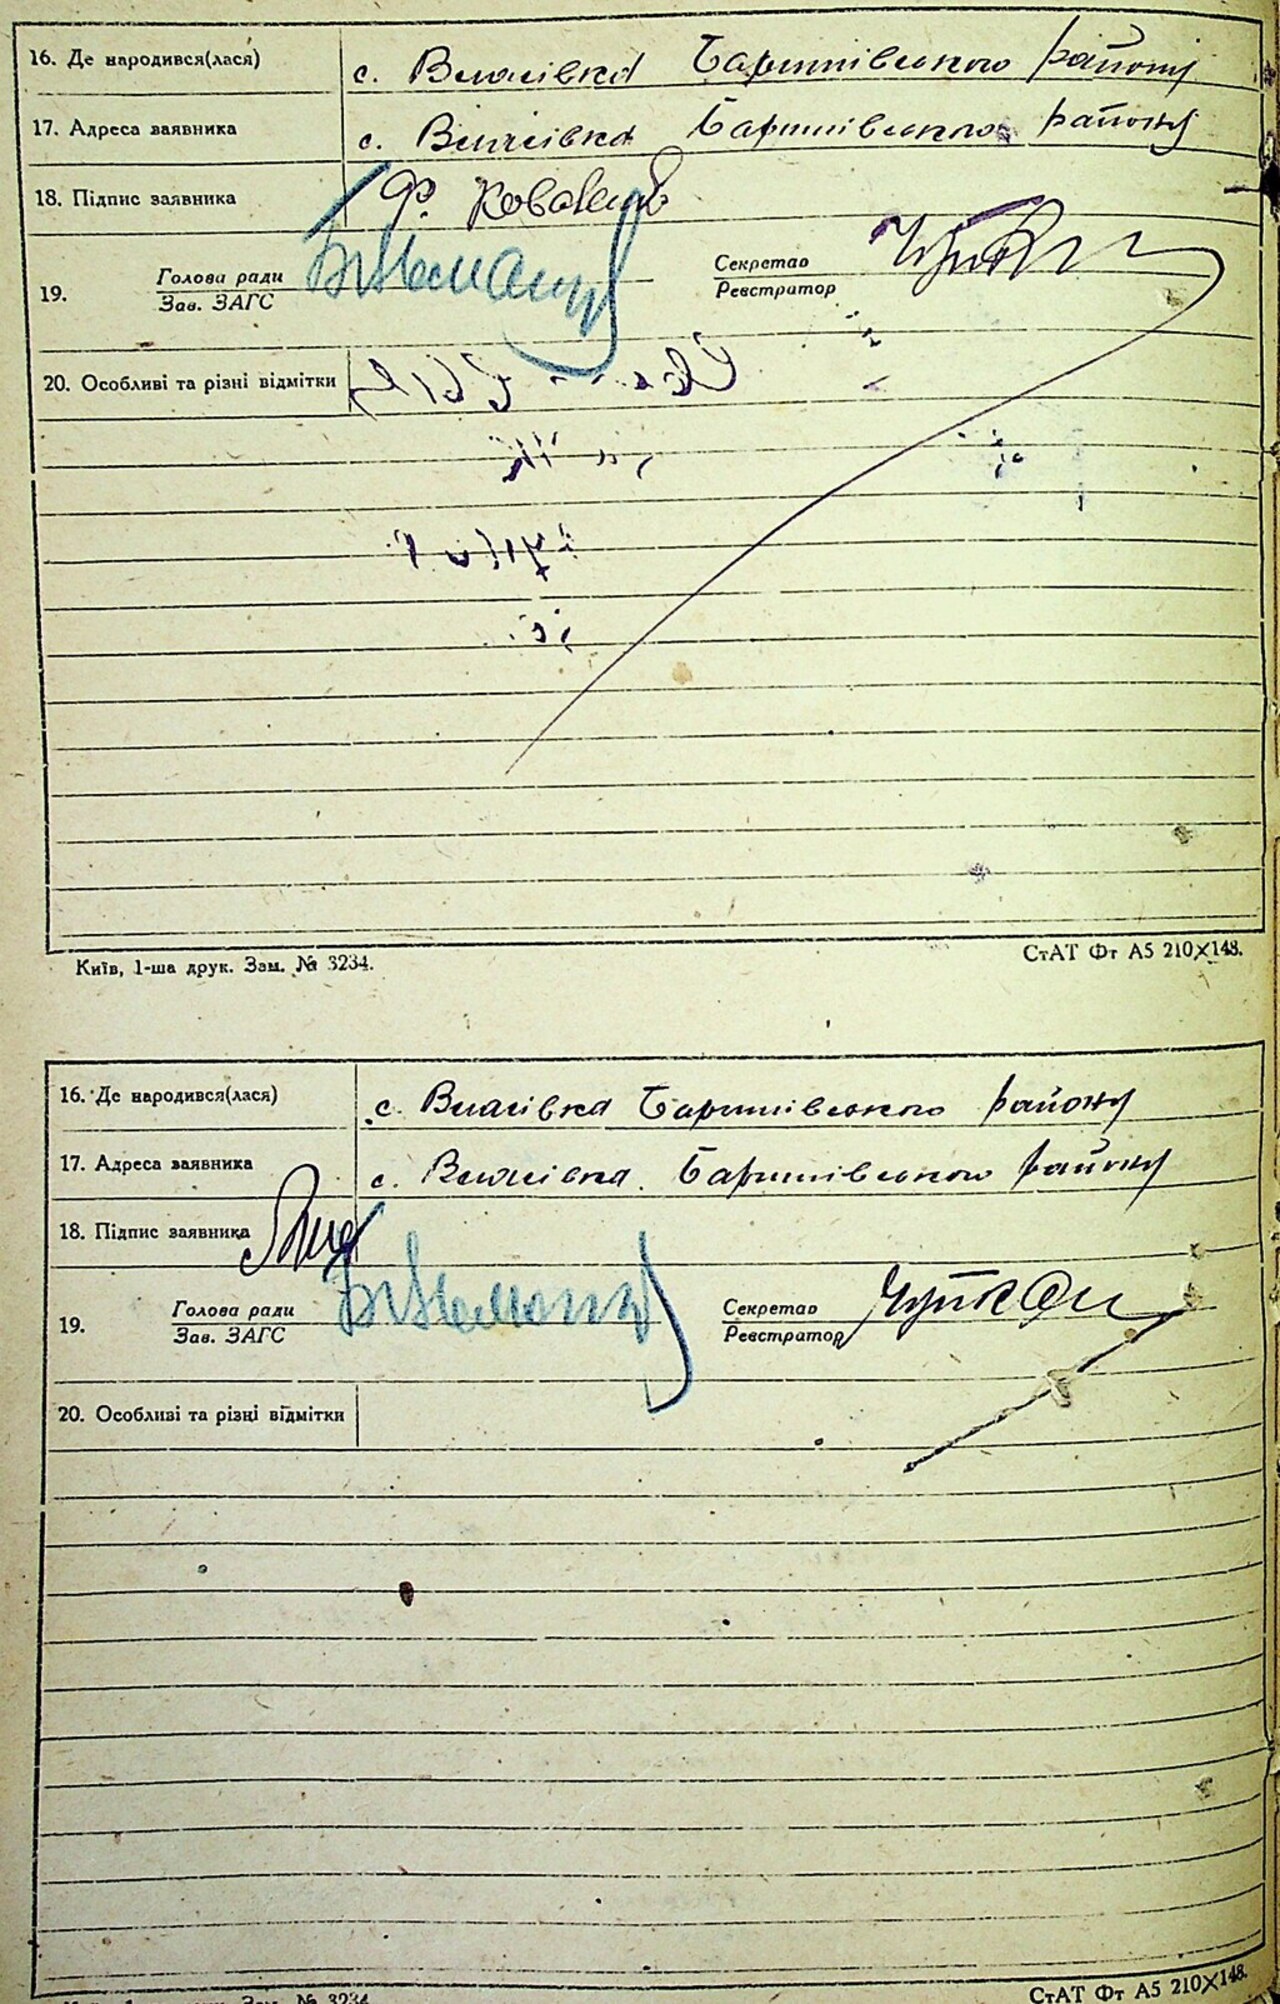 16. Де народився(лася) с. Власівка Баришівського району
17. Адреса заявника с. Власівка Баришівського району
18. Підпис заявника Ф. Коваленко
Голова ради Секретар
19.
Зав. ЗАГС Реєстратор
20. Особливі та різні відмітки
Київ, 1-ша друк. Зам. № 3234. СтАТ Фт А5 210×148.
16. Де народився(лася) с. Власівка Баришівського району
17. Адреса заявника с. Власівка Баришівського району
18. Підпис заявника
Голова ради Секретар
19.
Зав. ЗАГС Реєстратор
20. Особливі та різні відмітки
Зам. № 3234 СтАТ Фт А5 210×148.